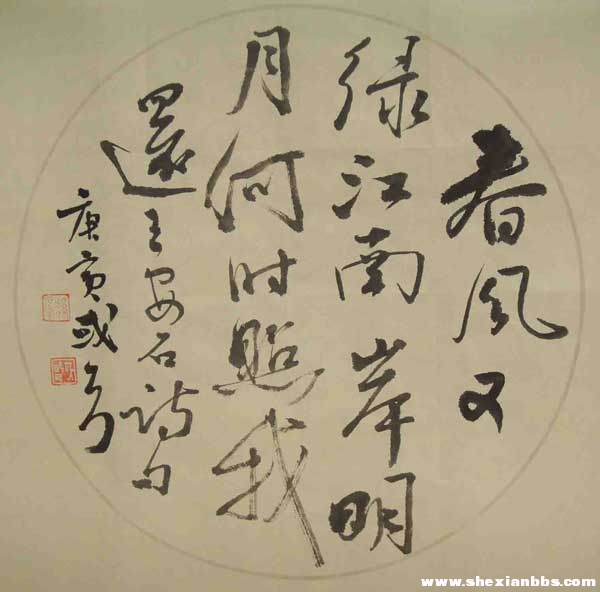 春风又
绿江南岸明
月何时照我
還王安石诗句
庚寅
www.shexianbbs.com